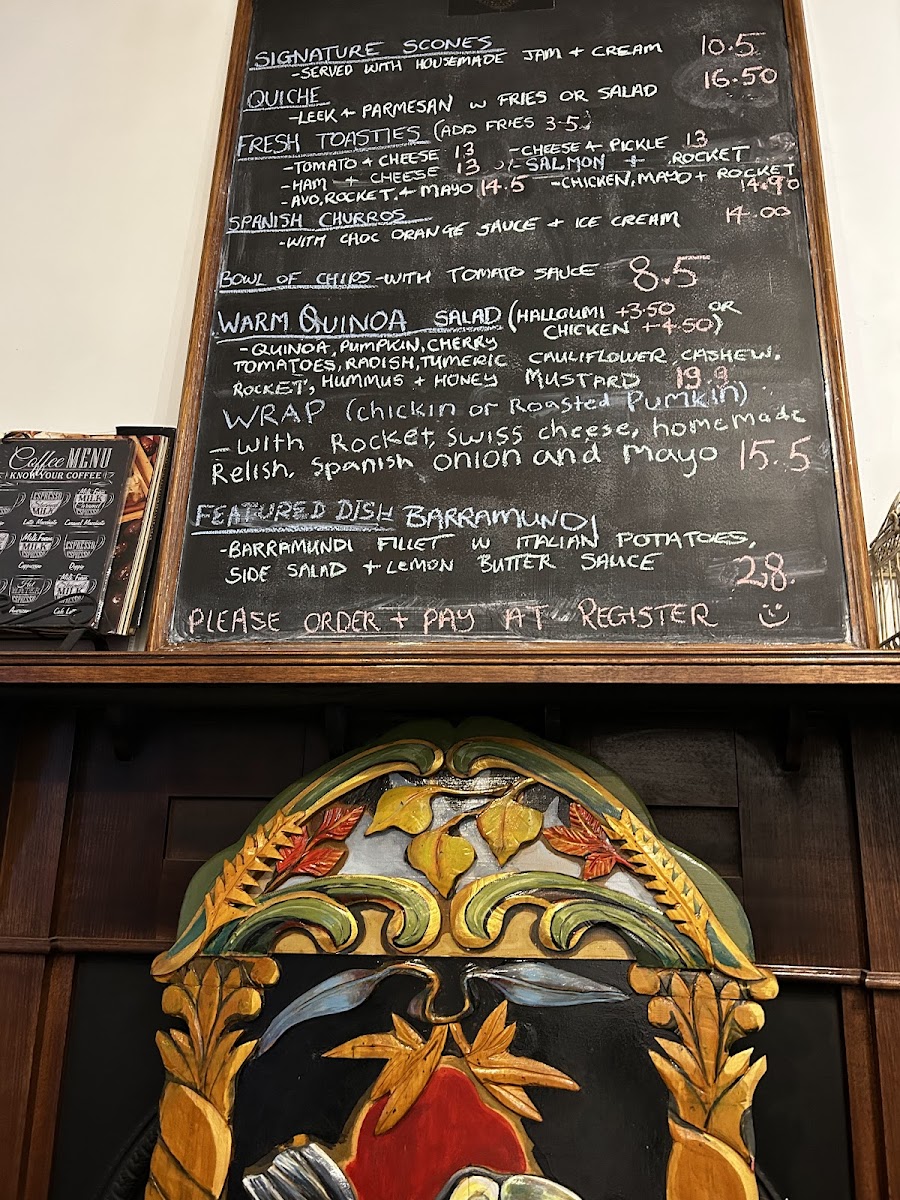 SIGNATURE SCONES 10.5
-SERVED WITH HOUSEMADE JAM + CREAM
QUICHE 16.50
-LEEK + PARMESAN W FRIES OR SALAD
FRESH TOASTIES (ADD FRIES 3.5)
-TOMATO + CHEESE 13 -CHEESE + PICKLE 13
-HAM + CHEESE 13 -SALMON + ROCKET
-AVO, ROCKET, + MAYO 14.5 -CHICKEN, MAYO + ROCKET
14.90
SPANISH CHURROS 14.00
-WITH CHOC ORANGE SAUCE + ICE CREAM
BOWL OF CHIPS -WITH TOMATO SAUCE 8.5
WARM QUINOA SALAD (HALLOUMI +3.50 OR
CHICKEN +4.50)
-QUINOA, PUMPKIN, CHERRY
TOMATOES, RADISH, TUMERIC CAULIFLOWER CASHEW.
ROCKET, HUMMUS + HONEY MUSTARD 19.9
WRAP (chickin or Roasted Pumkin)
-with Rocket, swiss cheese, homemade
Relish, spanish onion and mayo 15.5
FEATURED DISH BARRAMUNDI
-BARRAMUNDI FILLET W ITALIAN POTATOES,
SIDE SALAD + LEMON BUTTER SAUCE 28.
PLEASE ORDER + PAY AT REGISTER
Coffee MENU
KNOW YOUR COFFEE
ESPRESSO
Latte Macchiato
Caramel Macchiato
Milk Foam
MILK
ESPRESSO
ESPRESSO
Cappuccino